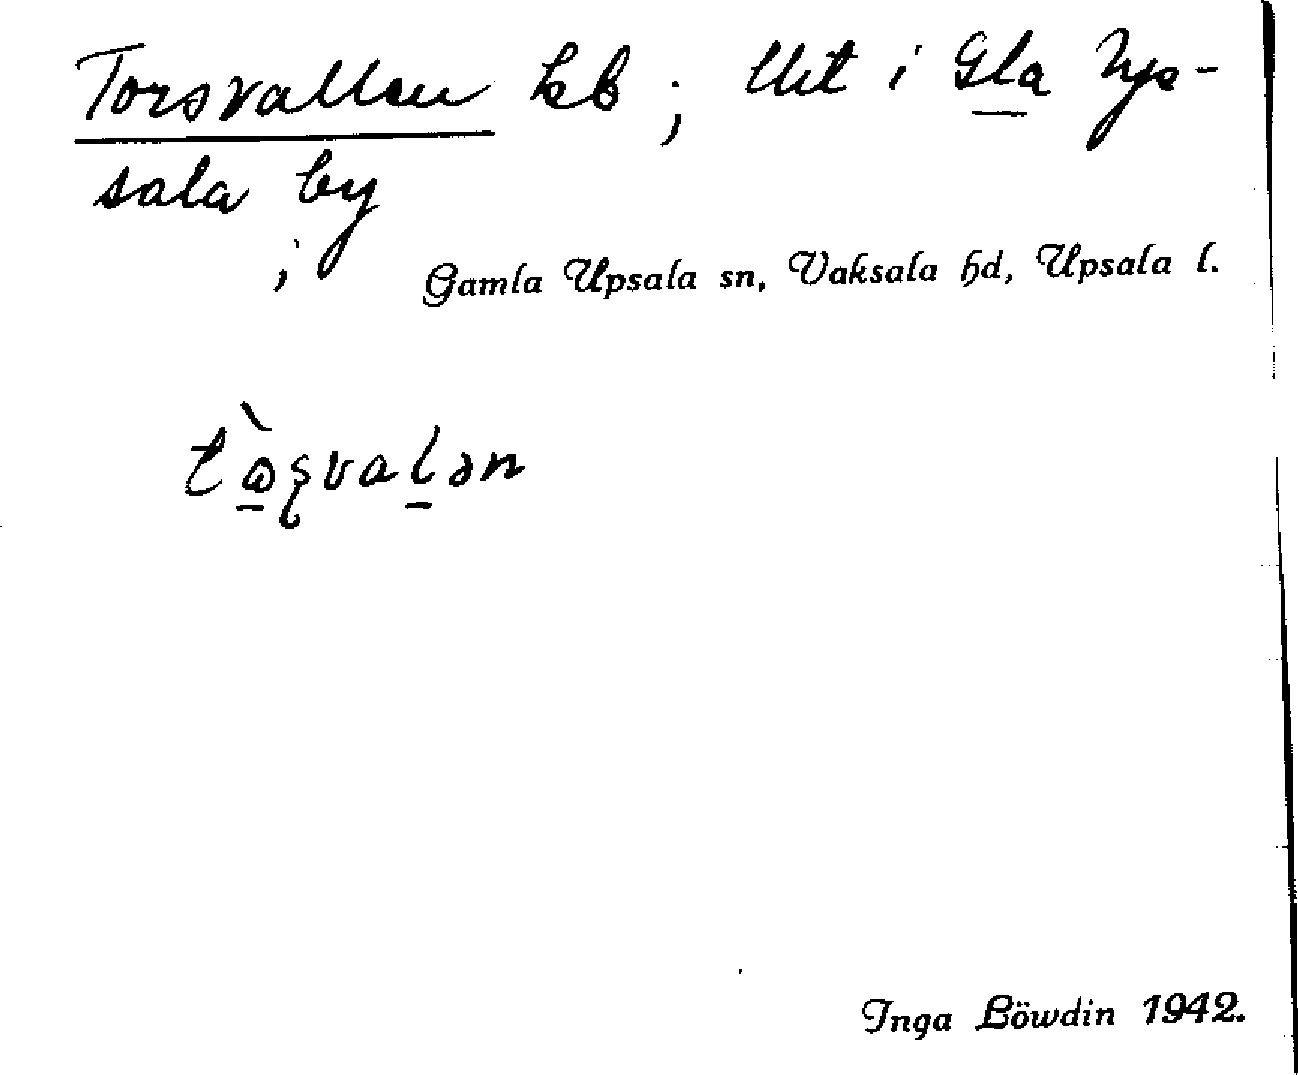 Torsvallen kb; litet i Gla Up-
sala by
;
Gamla Upsala sn, Vaksala hd, Upsala l.
Inga Löwdin 1942.